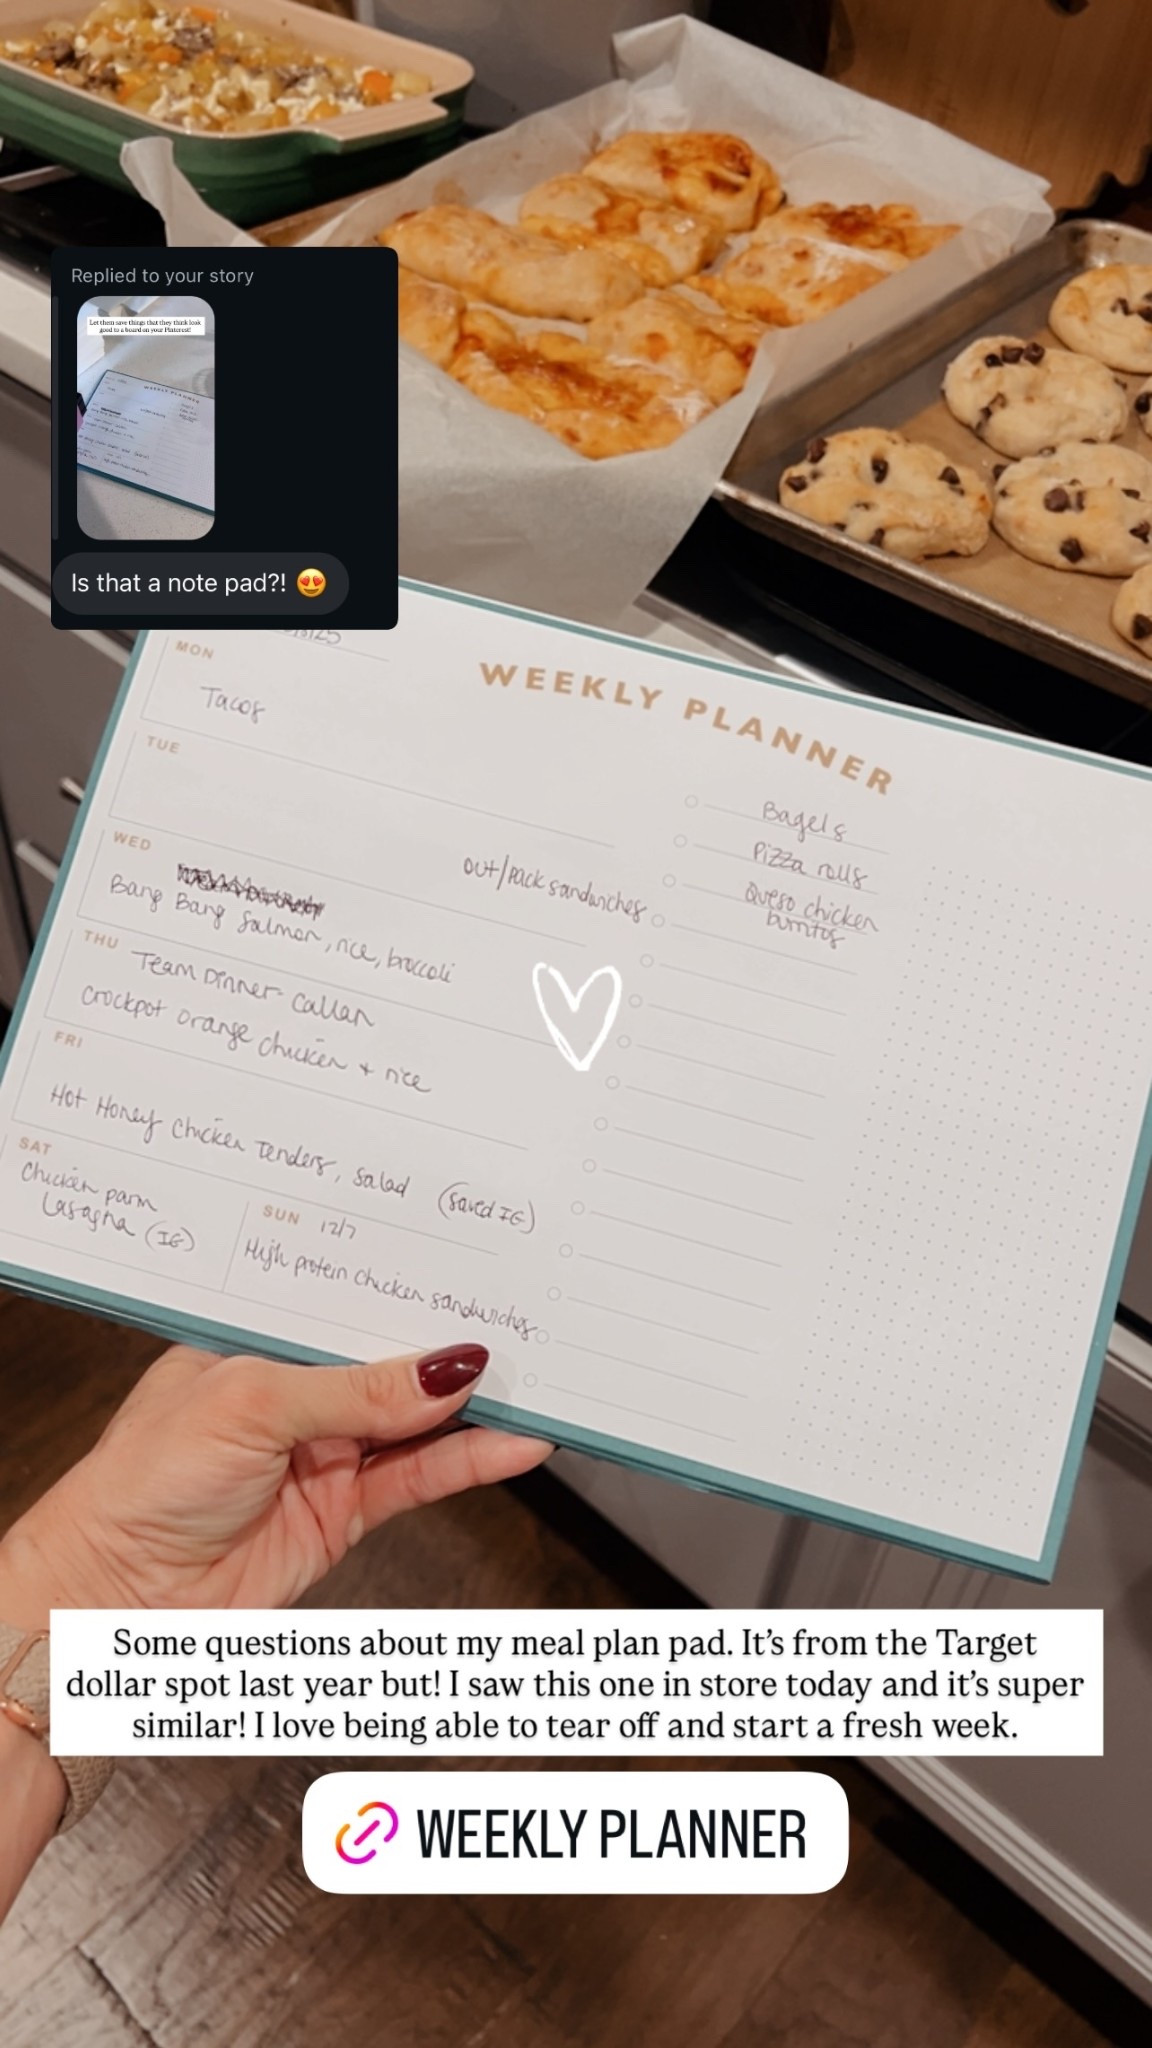 Replied to your story
Let them save things that they think look
good to a board on your Pinterest!
WEEKLY PLANNER
Is that a note pad?! 😍
WEEKLY PLANNER
MON
Tacos
TUE
out/pack sandwiches
WED
Bang Bang Salmon, rice, broccoli
THU
Team Dinner- Callan
Crockpot orange chicken + rice
FRI
Hot Honey Chicken Tenders, salad (saved IG)
SAT
Chicken parm
Lasagna (IG)
SUN 12/7
High protein chicken sandwiches
Bagels
Pizza rolls
Queso chicken
burritos
Some questions about my meal plan pad. It's from the Target
dollar spot last year but! I saw this one in store today and it's super
similar! I love being able to tear off and start a fresh week.
WEEKLY PLANNER